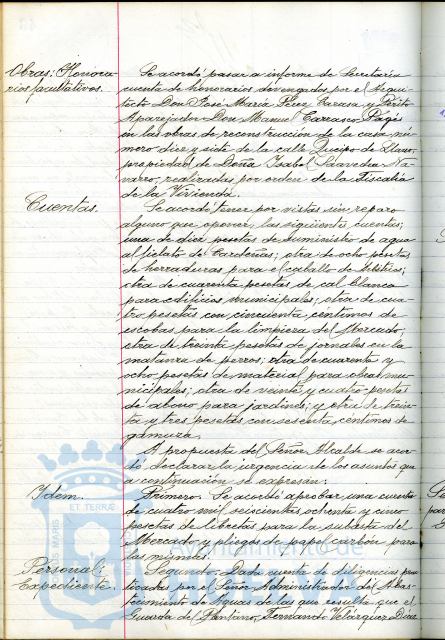 Obras: Honora-
rios facultativos.
Se acordó pasar a informe de Secretaría
cuenta de honorarios devengados por el Arqui-
tecto Don José María Pérez Carasa y Perito
Aparejador Don Manuel Carrasco Pagés
en las obras de reconstrucción de la casa nú-
mero diez y siete de la calle Queipo de Llano,
propiedad de Doña Isabel Saavedra Na-
varro, realizadas por orden de la Fiscalía
de la Vivienda.
Cuentas.
Se acordó tener por vistas sin reparo
alguno que oponer, las siguientes cuentas:
una de diez pesetas de suministro de agua
al fielato de Cardeñas; otra de ocho pesetas
de herraduras para el caballo de Arbitrios;
otra de cuarenta pesetas de cal blanca
para edificios municipales; otra de cua-
tro pesetas con cincuenta céntimos de
escobas para la limpieza del Mercado;
otra de treinta pesetas de jornales en la
matanza de perros; otra de cuarenta y
ocho pesetas de material para obras mu-
nicipales; otra de veinte y cuatro pesetas
de abono para jardines; y otra de trein-
ta y tres pesetas con sesenta céntimos de
gamuza.
A propuesta del Señor Alcalde se acor-
dó declarar la urgencia de los asuntos que
a continuación se expresan:
Idem.
Primero. Se acordó aprobar una cuenta
de cuatro mil seiscientas ochenta y cinco
pesetas de libretas para la subasta del
Mercado y pliegos de papel carbón para
las mismas.
Personal:
Expediente.
Segundo. Dada cuenta de diligencias prac-
ticadas por el Señor Administrador del Abas-
tecimiento de Aguas de las que resulta que el
Guarda del Pantano, Fernando Velázquez Díaz
PORTUS MARIS ET TERRÆ
Ayuntamiento de